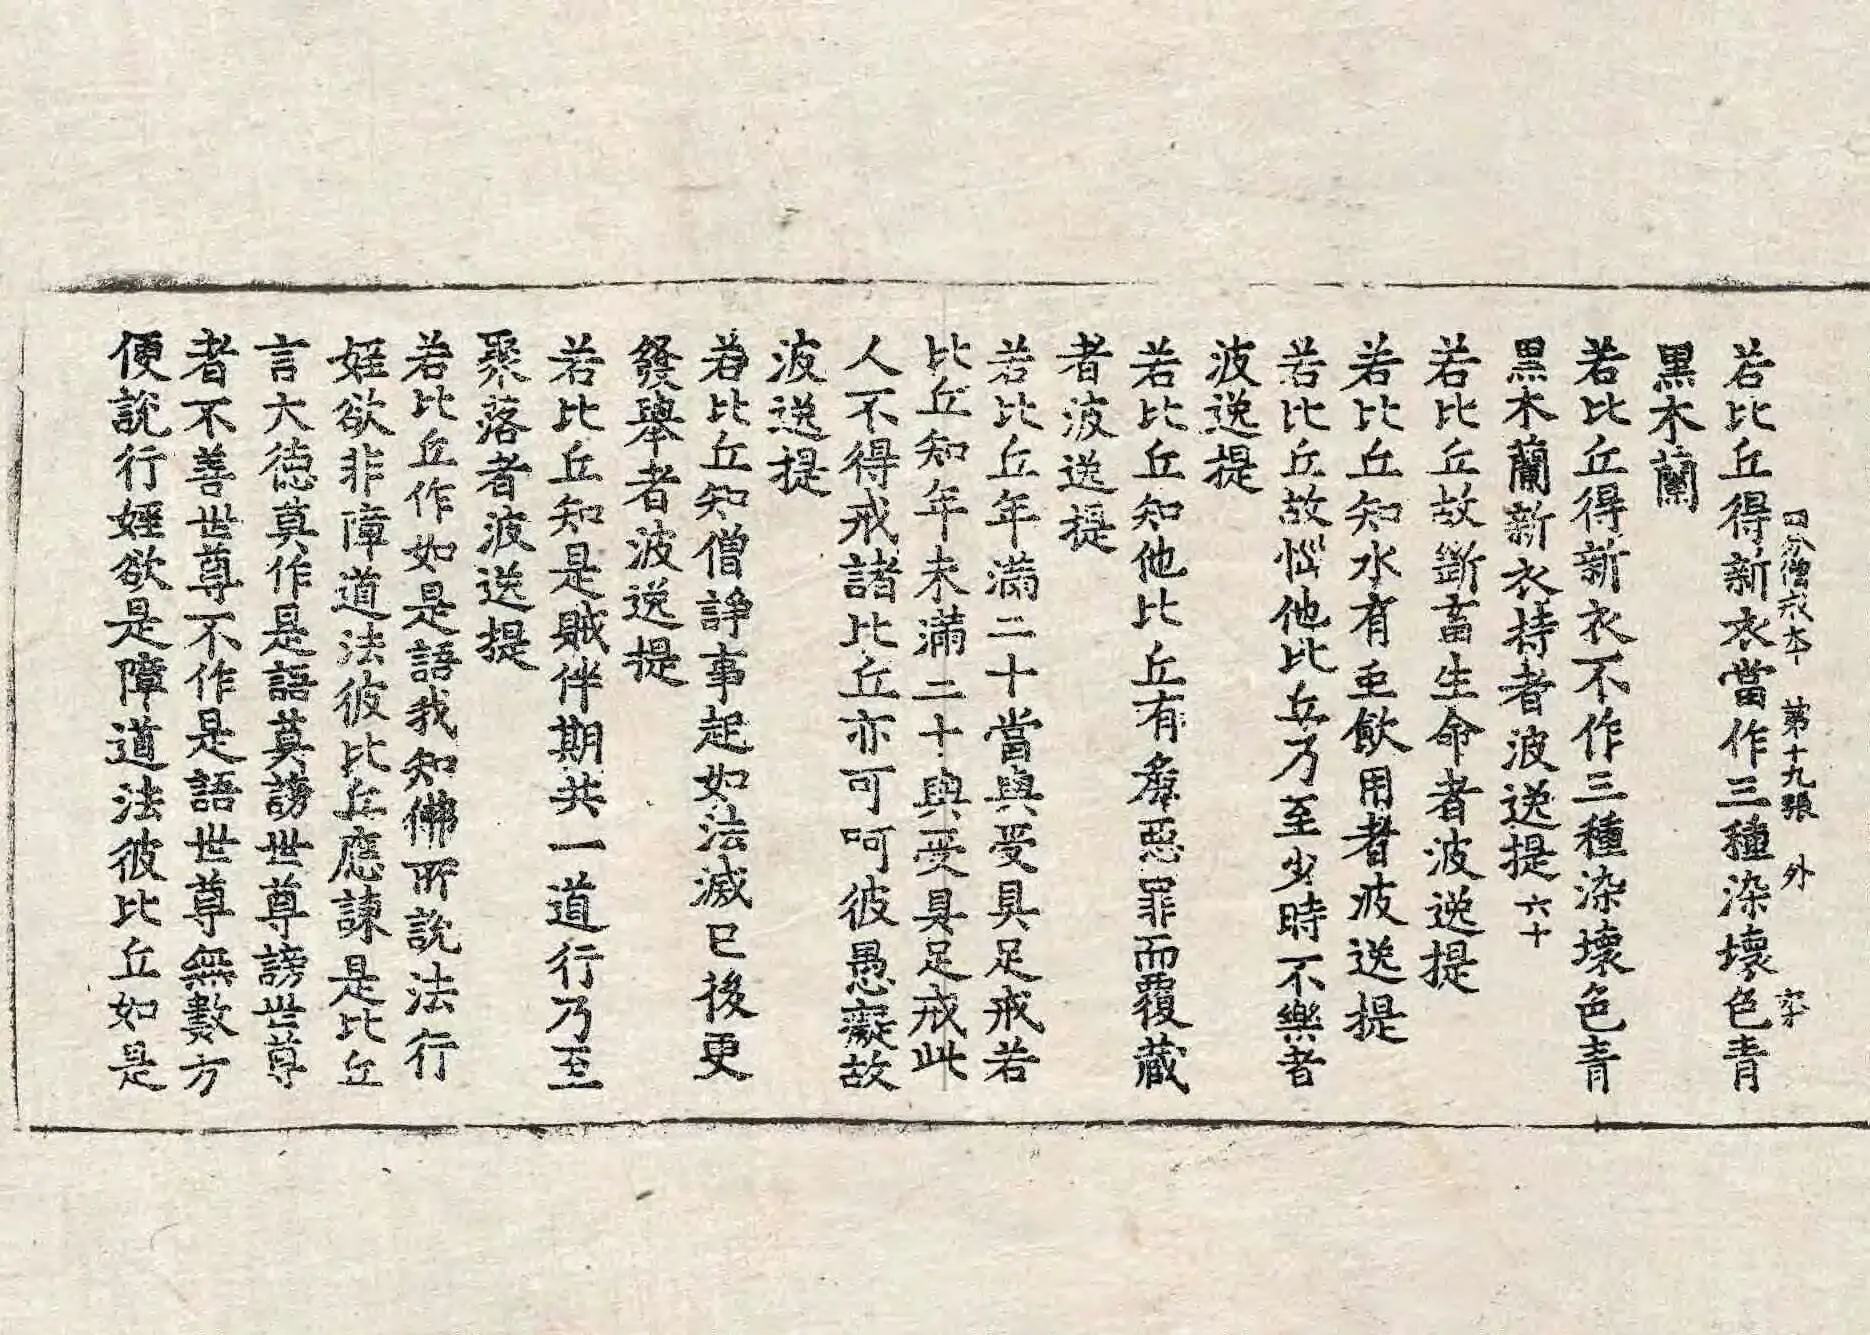 四分僧戒本 第十九張 外
若比丘得新衣當作三種染壞色青
黑木蘭
若比丘得新衣不作三種染壞色青
黑木蘭新衣持者波逸提六十
若比丘故斷畜生命者波逸提
若比丘知水有虫飲用者波逸提
若比丘故惱他比丘乃至少時不樂者
波逸提
若比丘知他比丘有麁惡罪而覆藏
者波逸提
若比丘年滿二十當與受具足戒若
比丘知年未滿二十與受具足戒此
人不得戒諸比丘亦可呵彼愚癡故
波逸提
若比丘知僧諍事起如法滅已後更
發舉者波逸提
若比丘知是賊伴期共一道行乃至
聚落者波逸提
若比丘作如是語我知佛所說法行
婬欲非障道法彼比丘應諫是比丘
言大德莫作是語莫謗世尊謗世尊
者不善世尊不作是語世尊無數方
便說行婬欲是障道法彼比丘如是